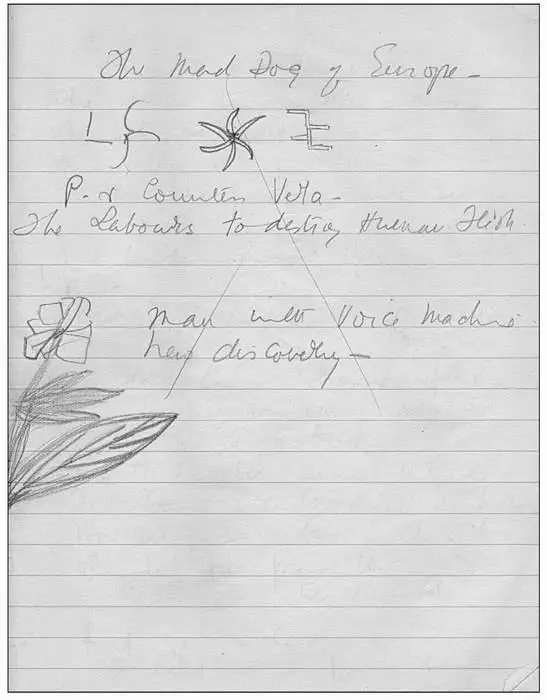 The Mad Dog of Europe –
P. & Countess Vera –
The Labours to destroy Human Flesh
Man with Voice Machine.
new discovery –